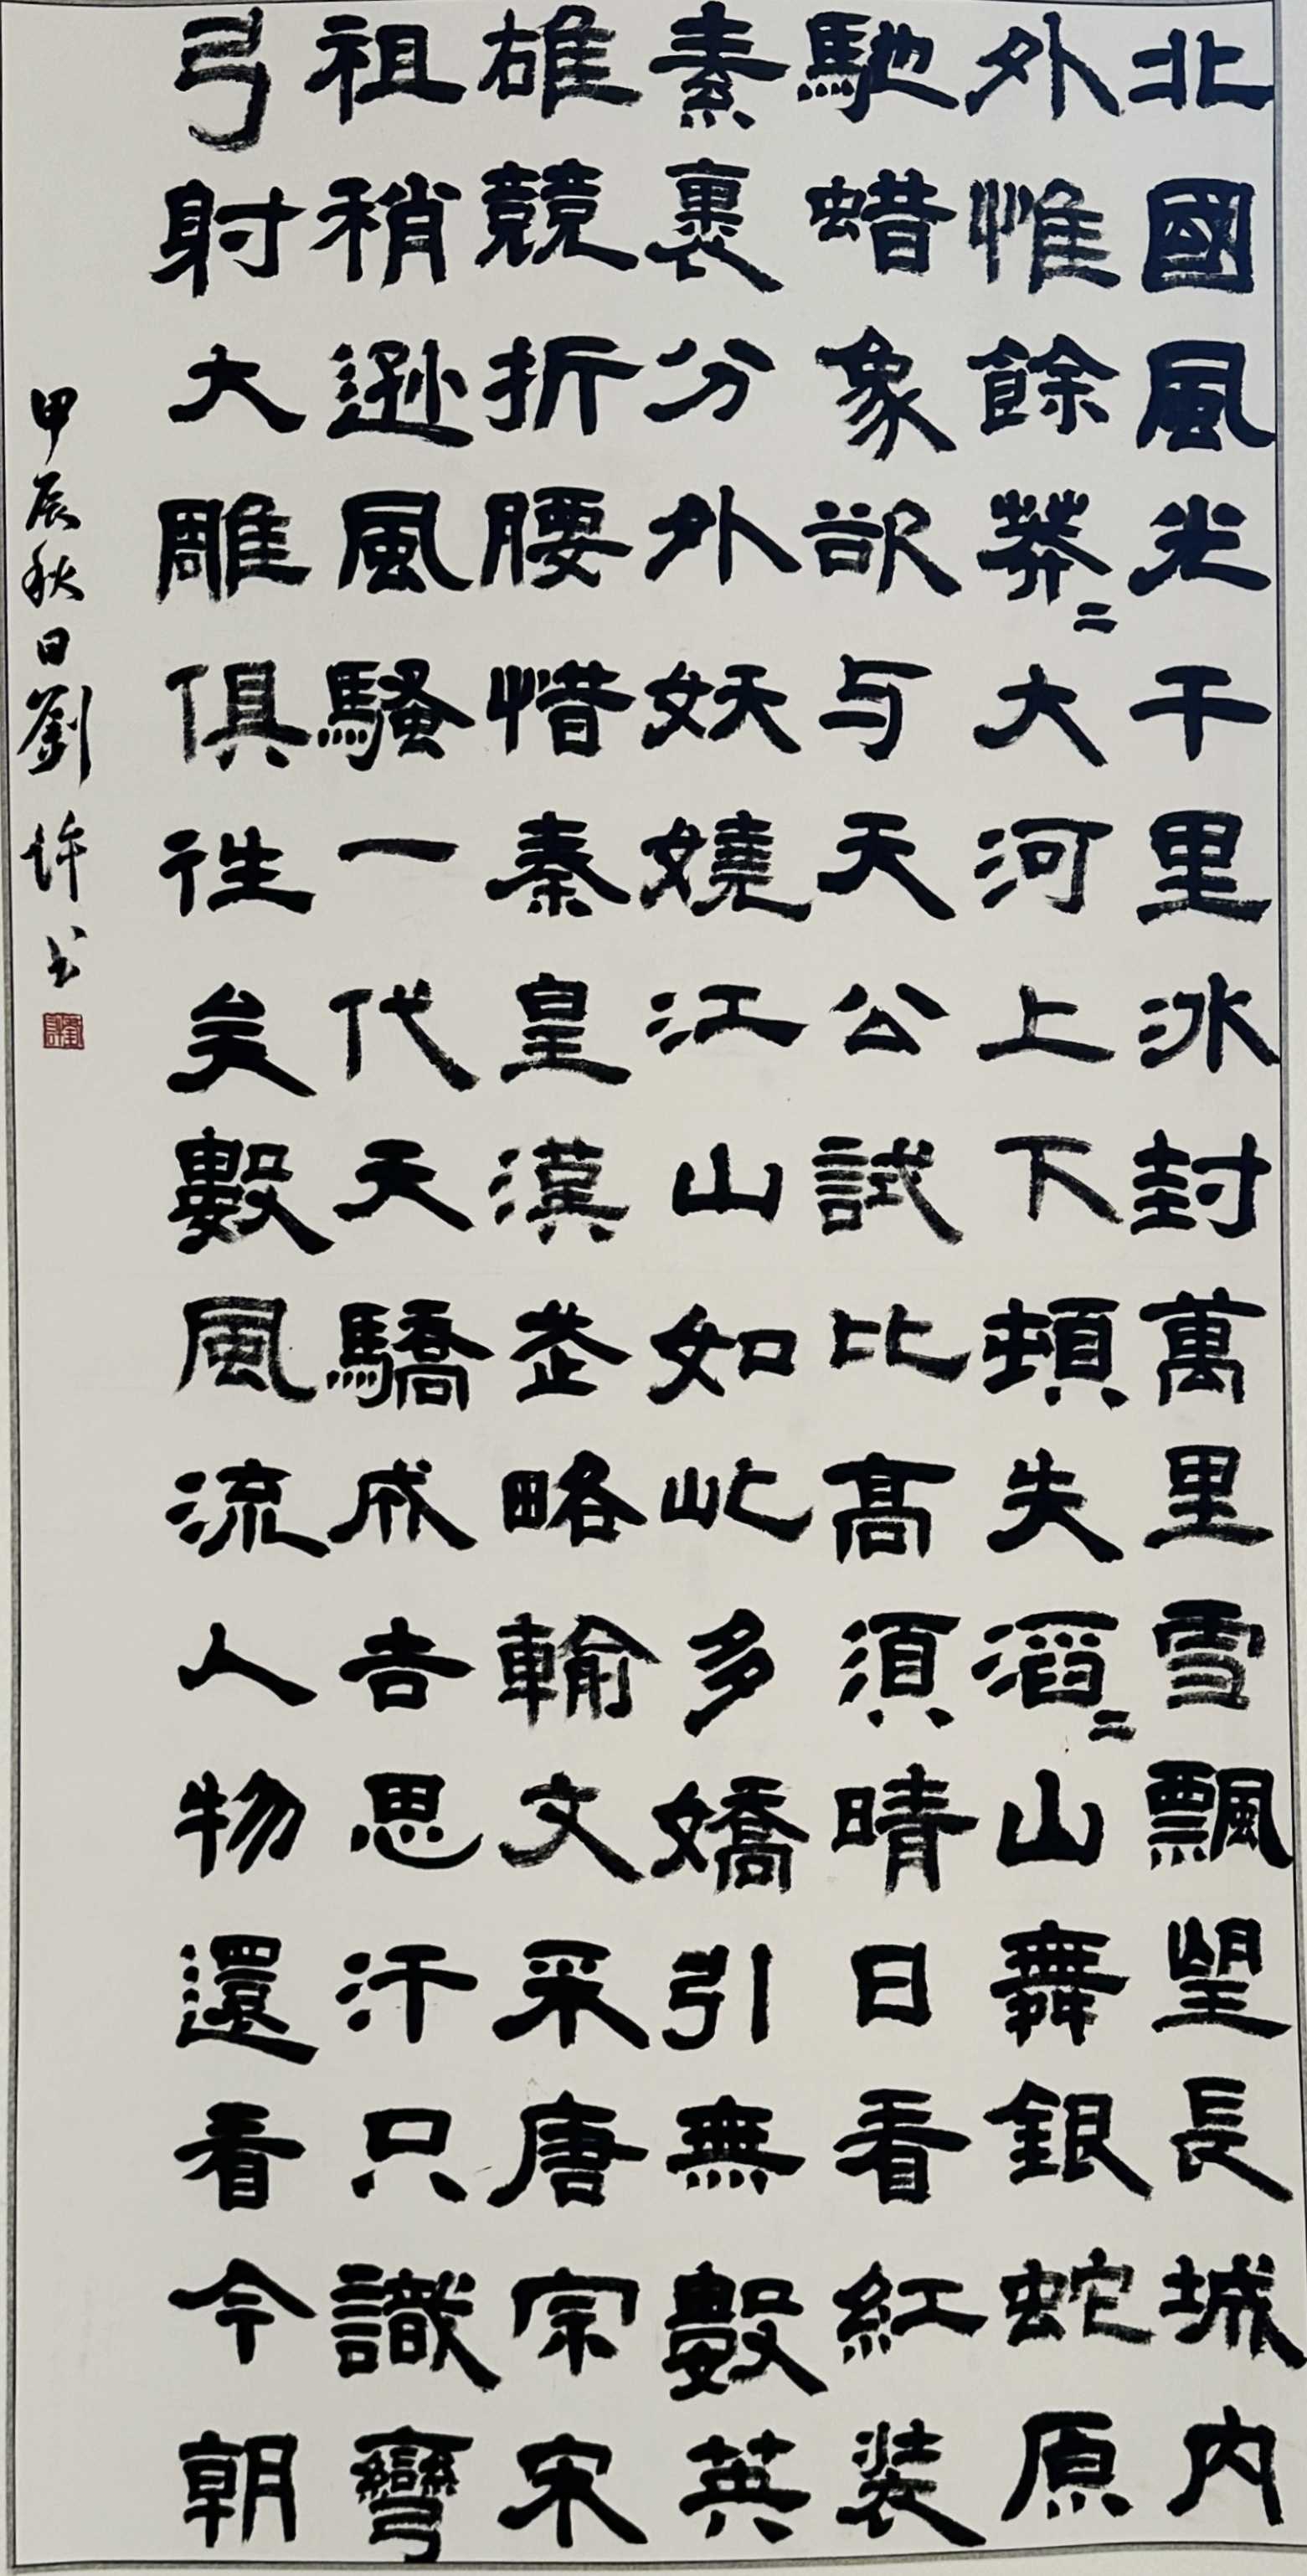 北國風光千里冰封萬里雪飄望長城内
外惟餘莽〻大河上下頓失滔〻山舞銀蛇原
馳蜡象欲与天公試比高須晴日看紅装
素裹分外妖嬈江山如此多嬌引無數英
雄競折腰惜秦皇漢武略輸文采唐宗宋
祖稍遜風騷一代天驕成吉思汗只識彎
弓射大雕俱往矣數風流人物還看今朝
甲辰秋日劉許书